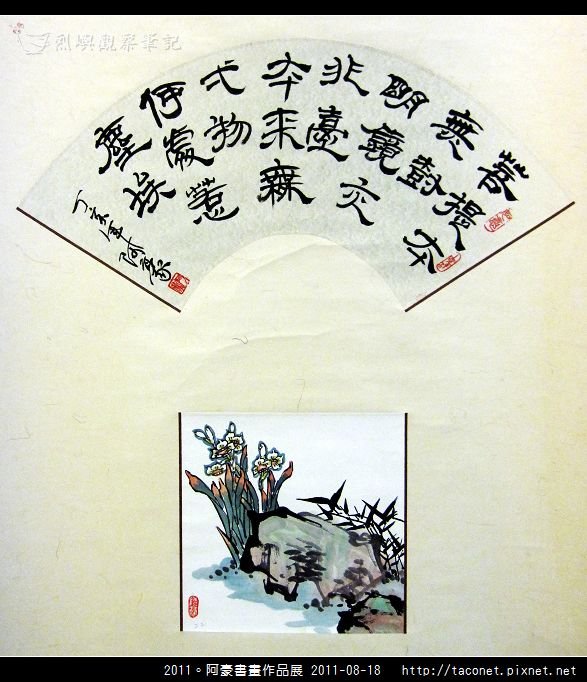 菩提本
無樹
明鏡亦
非臺
本來無
弌物
何處惹
塵埃
丁亥年阿豪
烈嶼觀察筆記
2011。阿豪書畫作品展 2011-08-18 http://taconet.pixnet.net